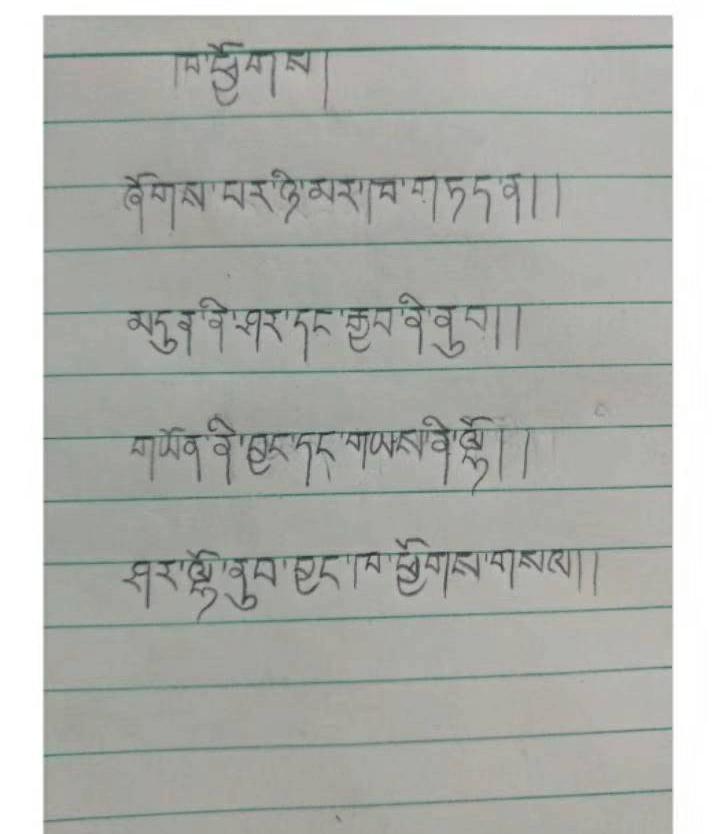 ཁ་ཕྱོགས།
ཞོགས་པར་ཉི་མར་ཁ་གཏད་ན།།
མདུན་ནི་ཤར་དང་རྒྱབ་ནི་ནུབ།།
གཡོན་ནི་བྱང་དང་གཡས་ནི་ལྷོ།།
ཤར་ལྷོ་ནུབ་བྱང་ཁ་ཕྱོགས་གསལ།།